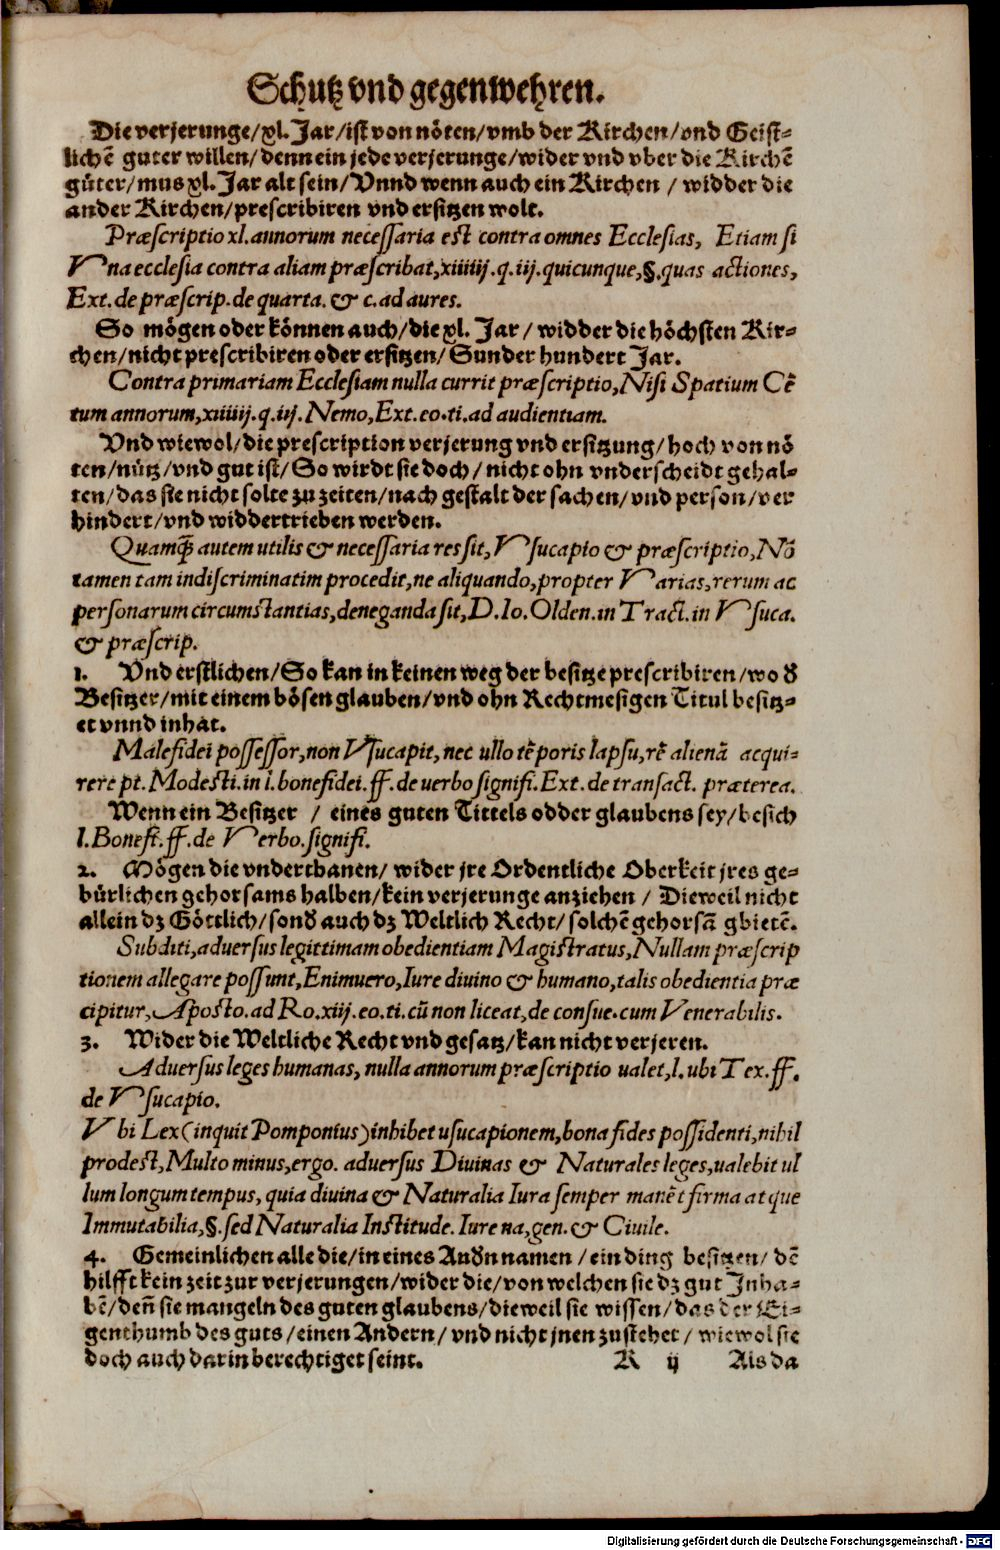 Schutz vnd gegenwehren.
Die verjerunge/xl. Jar/ist von nöten/vmb der Kirchen/vnd Geist-
lichẽ guter willen/denn ein jede verjerunge/wider vnd vber die Kirchẽ
güter/mus xl. Jar alt sein/Vnnd wenn auch ein Kirchen / widder die
ander Kirchen/prescribiren vnd ersitzen wolt.
Præscriptio xl. annorum necessaria est contra omnes Ecclesias, Etiam si
Vna ecclesia contra aliam præscribat, xiiiiij. q. iij. quicunque, §. quas actiones,
Ext. de præscrip. de quarta. & c. ad aures.
So mögen oder können auch/die xl. Jar / widder die höchsten Kir-
chen/nicht prescribiren oder ersitzen/Sunder hundert Jar.
Contra primariam Ecclesiam nulla currit præscriptio, Nisi Spatium Cẽ
tum annorum, xiiiiij. q. iij. Nemo, Ext. eo. ti. ad audientiam.
Vnd wiewol/die prescription verjerung vnd ersitzung/hoch von nö
ten/nütz/vnd gut ist/So wirdt sie doch/ nicht ohn vnderscheidt gehal-
ten/das sie nicht solte zu zeiten/nach gestalt der sachen/vnd person/ver
hindert/vnd widdertrieben werden.
Quamq̃ autem utilis & necessaria res sit, Vsucapio & præscriptio, Nõ
tamen tam indiscriminatim procedit, ne aliquando, propter Varias, rerum ac
personarum circumstantias, deneganda sit, D. Io. Olden. in Tract. in Vsuca.
& præscrip.
1. Vnd erstlichen/So kan in keinen weg der besitze prescribiren/wo d̃
Besitzer/mit einem bösen glauben/vnd ohn Rechtmesigen Titul besitz-
et vnnd inhat.
Malefidei possessor, non Vsucapit, nec ullo tẽporis lapsu, rẽ alienã acqui-
rere pt. Modesti. in l. bonefidei. ff. de verbo signifi. Ext. de transact. præterea.
Wenn ein Besitzer / eines guten Tittels odder glaubens sey/besich
l. Bonefi. ff. de Verbo. signifi.
2. Mögen die vnderthanen/ wider jre Ordentliche Oberkeit jres ge-
bürlichen gehorsams halben/kein verjerunge anziehen / Dieweil nicht
allein dz Göttlich/sond̃ auch dz Weltlich Recht/solchẽ gehorsã gbietẽ.
Subditi, adversus legittimam obedientiam Magistratus, Nullam præscrip
tionem allegare possunt, Enimuero, Iure divino & humano, talis obedientia præ
cipitur, Aposto. ad Ro. xiij. eo. ti. cũ non liceat, de consue. cum Venerabilis.
3. Wider die Weltliche Recht vnd gesatz/kan nicht verjeren.
Adversus leges humanas, nulla annorum præscriptio ualet, l. ubi Tex. ff.
de Vsucapio.
Vbi Lex (inquit Pomponius) inhibet usucapionem, bona fides possidenti, nihil
prodest, Multo minus, ergo. adversus Divinas & Naturales leges, ualebit ul
lum longum tempus, quia divina & Naturalia Iura semper manẽt firma atque
Immutabilia, §. sed Naturalia Institude. Iure na, gen. & Ciuile.
4. Gemeinlichen alle die/in eines And̃n namen / ein ding besitzen/ dẽ
hilfft kein zeit zur verjerungen/wider die/von welchen sie dz gut Inha-
bẽ/deñ sie mangeln des guten glaubens/dieweil sie wissen/das der Ei-
genthumb des guts/einen Andern/ vnd nicht jnen zustehet/ wiewol sie
doch auch darin berechtiget seint.
K ij Als da
Digitalisierung gefördert durch die Deutsche Forschungsgemeinschaft - DFG